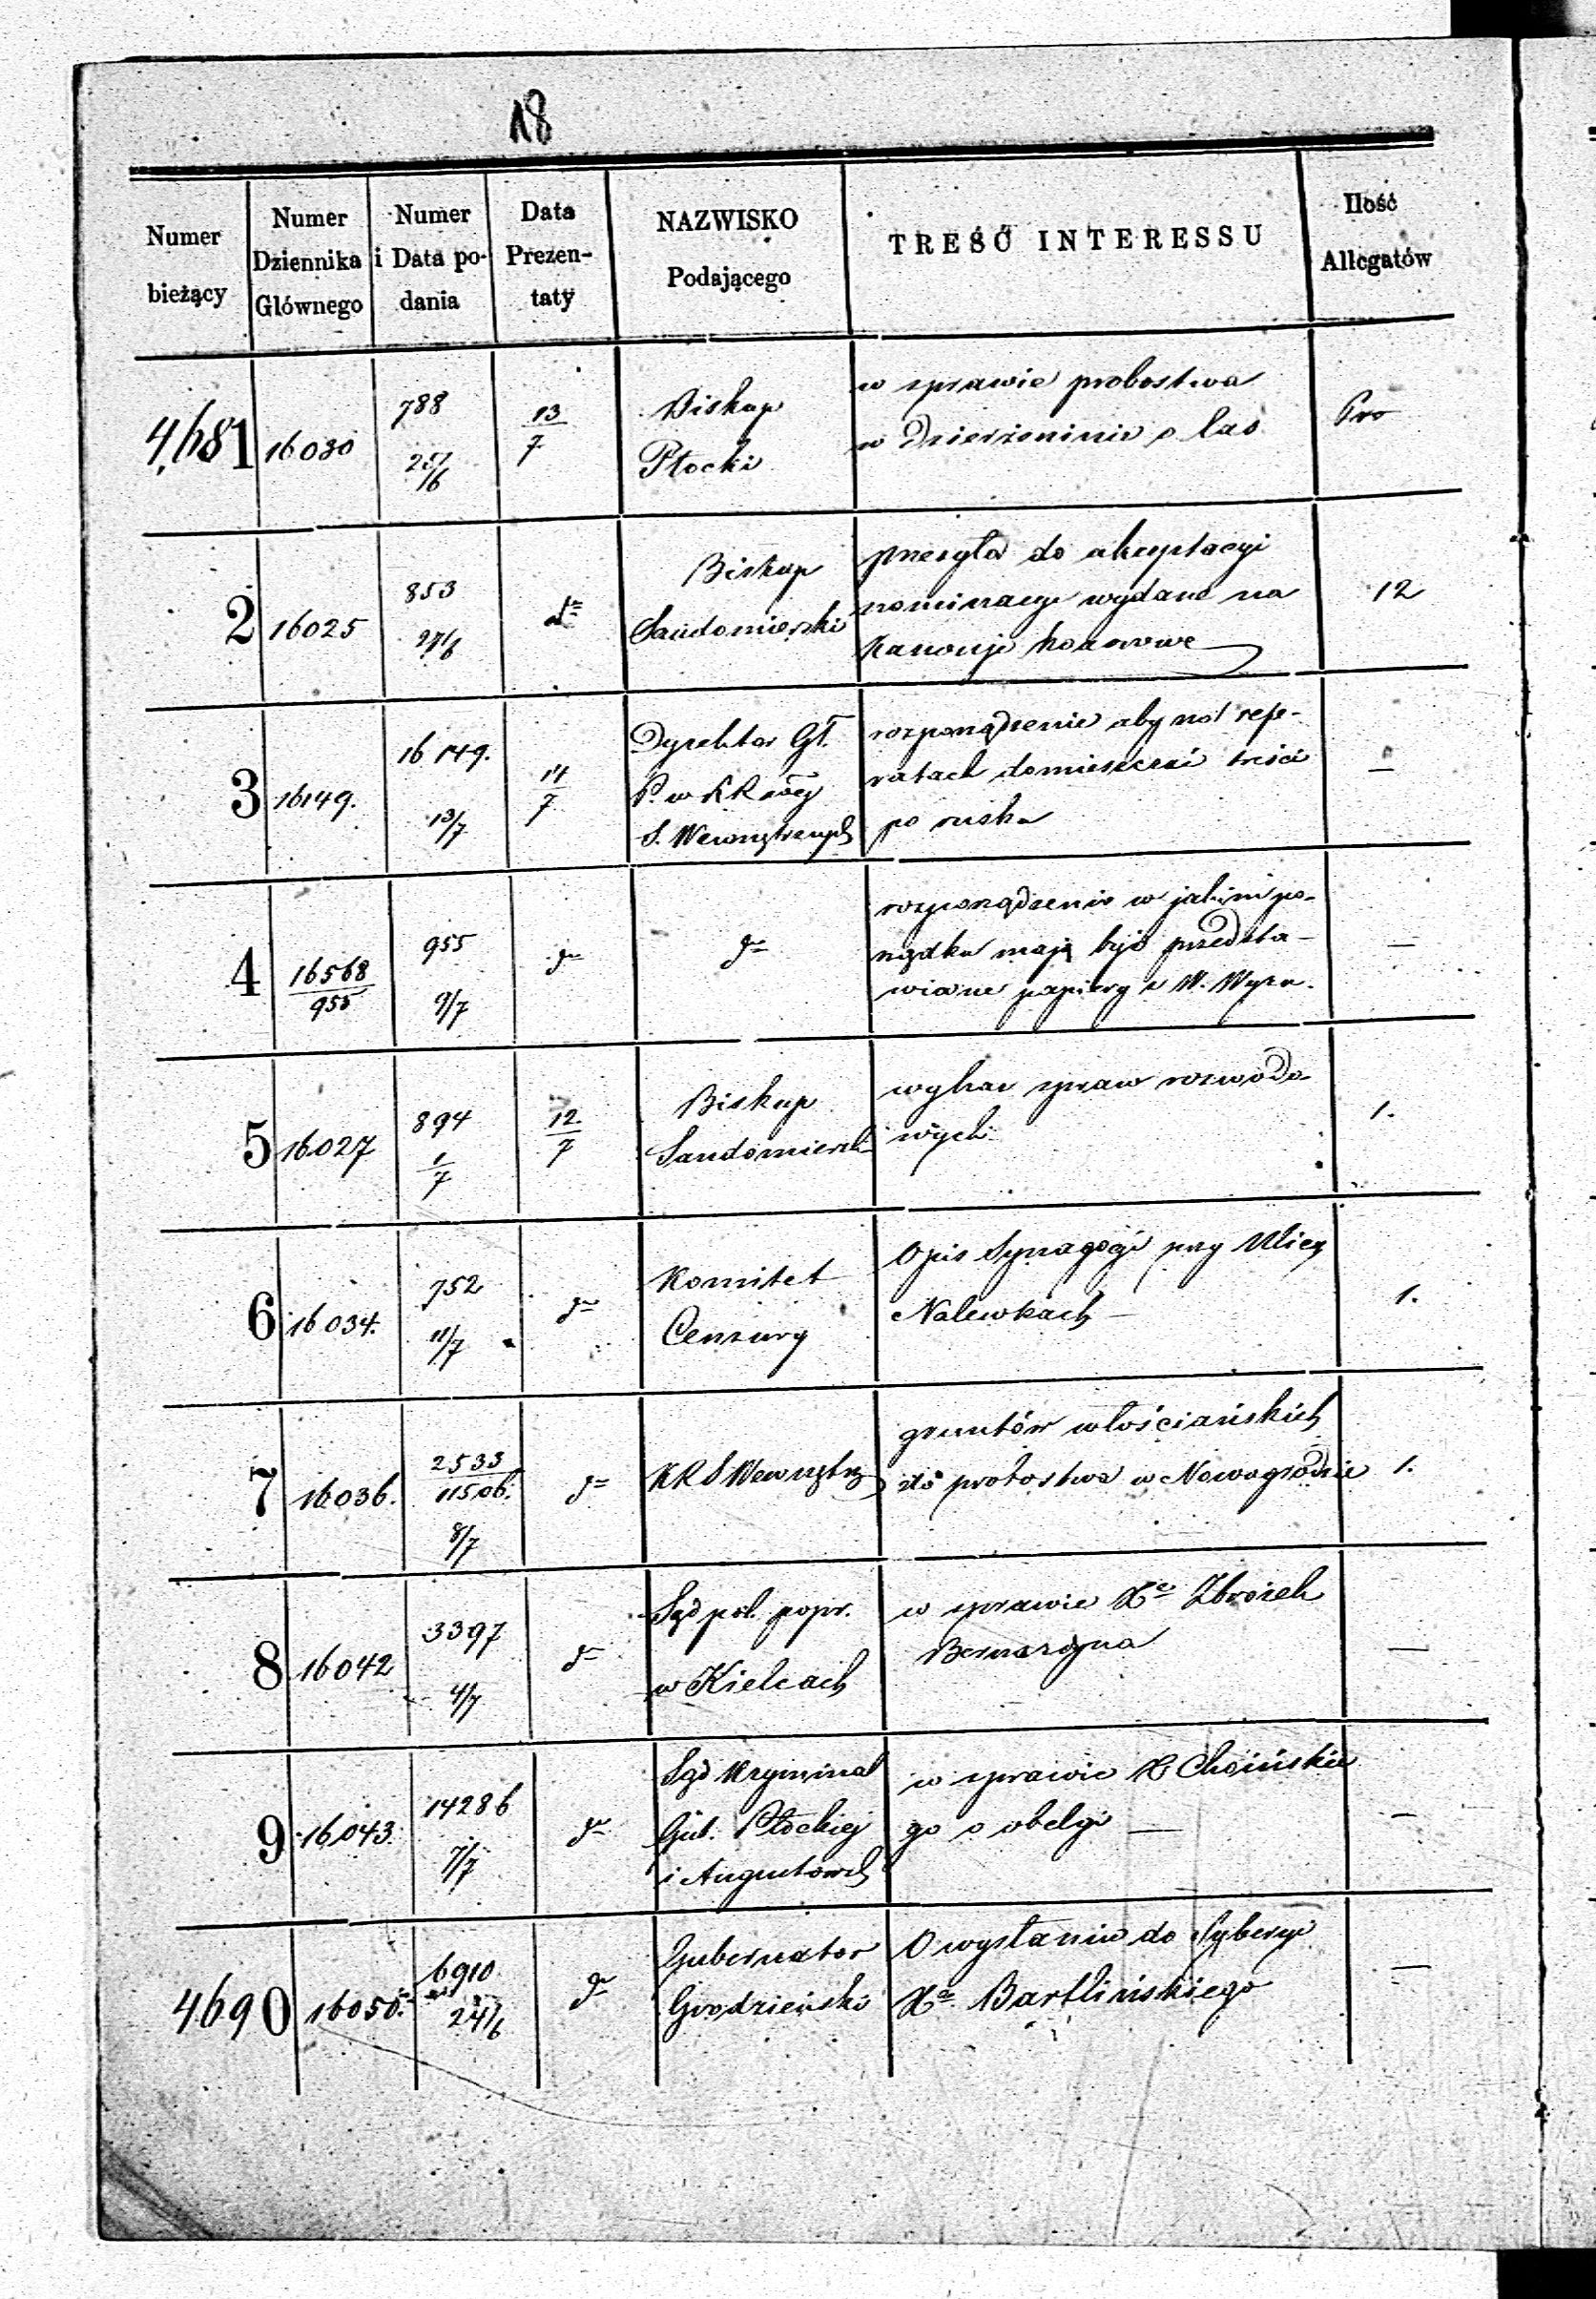 18
Numer bieżący
Numer Dziennika Głównego
Numer i Data podania
Data Prezentaty
NAZWISKO Podającego
TREŚĆ INTERESSU
Ilość Allegatów
4,681
16030
788
25/6
13/7
Biskup
Płocki
w sprawie probostwa
w Dzierżeninie o las
Pro
2
16025
853
27/6
do
Biskup
Sandomierski
przesyła do akceptacyi
nominacye wydane na
Kanonje honorowe
12
3
16149.
16149.
13/7
14/7
Dyrektor Gł.
P. w K R
S. Wewnętrznych
rozporządzenie aby na refe-
ratach domieszczać treści
po rusku
—
4
16568
955
955
9/7
do
do
rozporządzenie w jakim po-
rządku mają być przedsta-
wiane papiery z W. Wyzn.
—
5
16027
894
1/7
12/7
Biskup
Sandomierski
wykaz spraw rozwodo-
wych
1.
6
16034.
752
11/7
do
Komitet
Cenzury
Opis Synagogi przy Ulicy
Nalewkach —
1.
7
16036.
2533
11506.
8/7
do
KRSWewnętrz
gruntów włościańskich
do probostwa w Nowogrodzie
1.
8
16042
3397
4/7
do
Sąd pol. popr.
w Kielcach
w sprawie Xa Zbrożek
Bernardyna
—
9
16043.
14286
7/7
do
Sąd Kryminal
Gub. Płockiej
i Augustows
w sprawie X Choińskie
go o obelgi —
—
4690
16050.
6910
24/6
do
Gubernator
Grodzieński
O wysłaniu do Syberyi
Xa Bartlińskiego
—